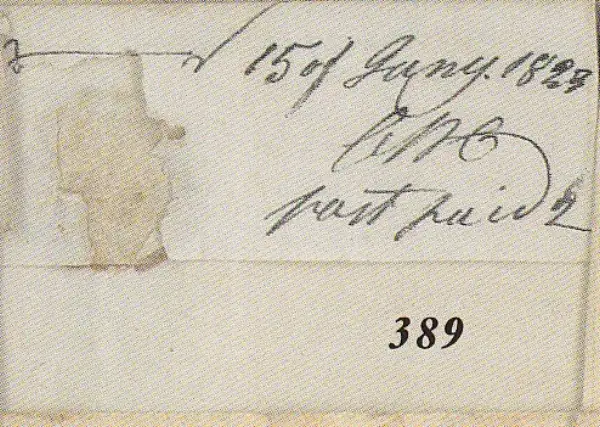 15 of Jany. 1823
post paid 2
389